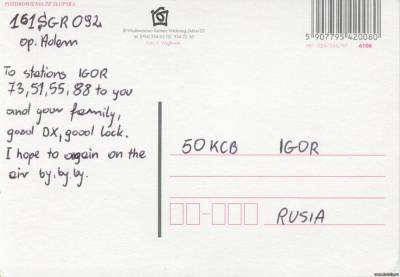 POZDROWIENIA ZE SŁUPSKA
161SGR092
op. Adam
To stations IGOR
73,51,55, 88 to you
and your family,
good DX, good lock.
I hope to again on the
air by, by, by.
5 907795 420080
50KCB IGOR
RUSIA